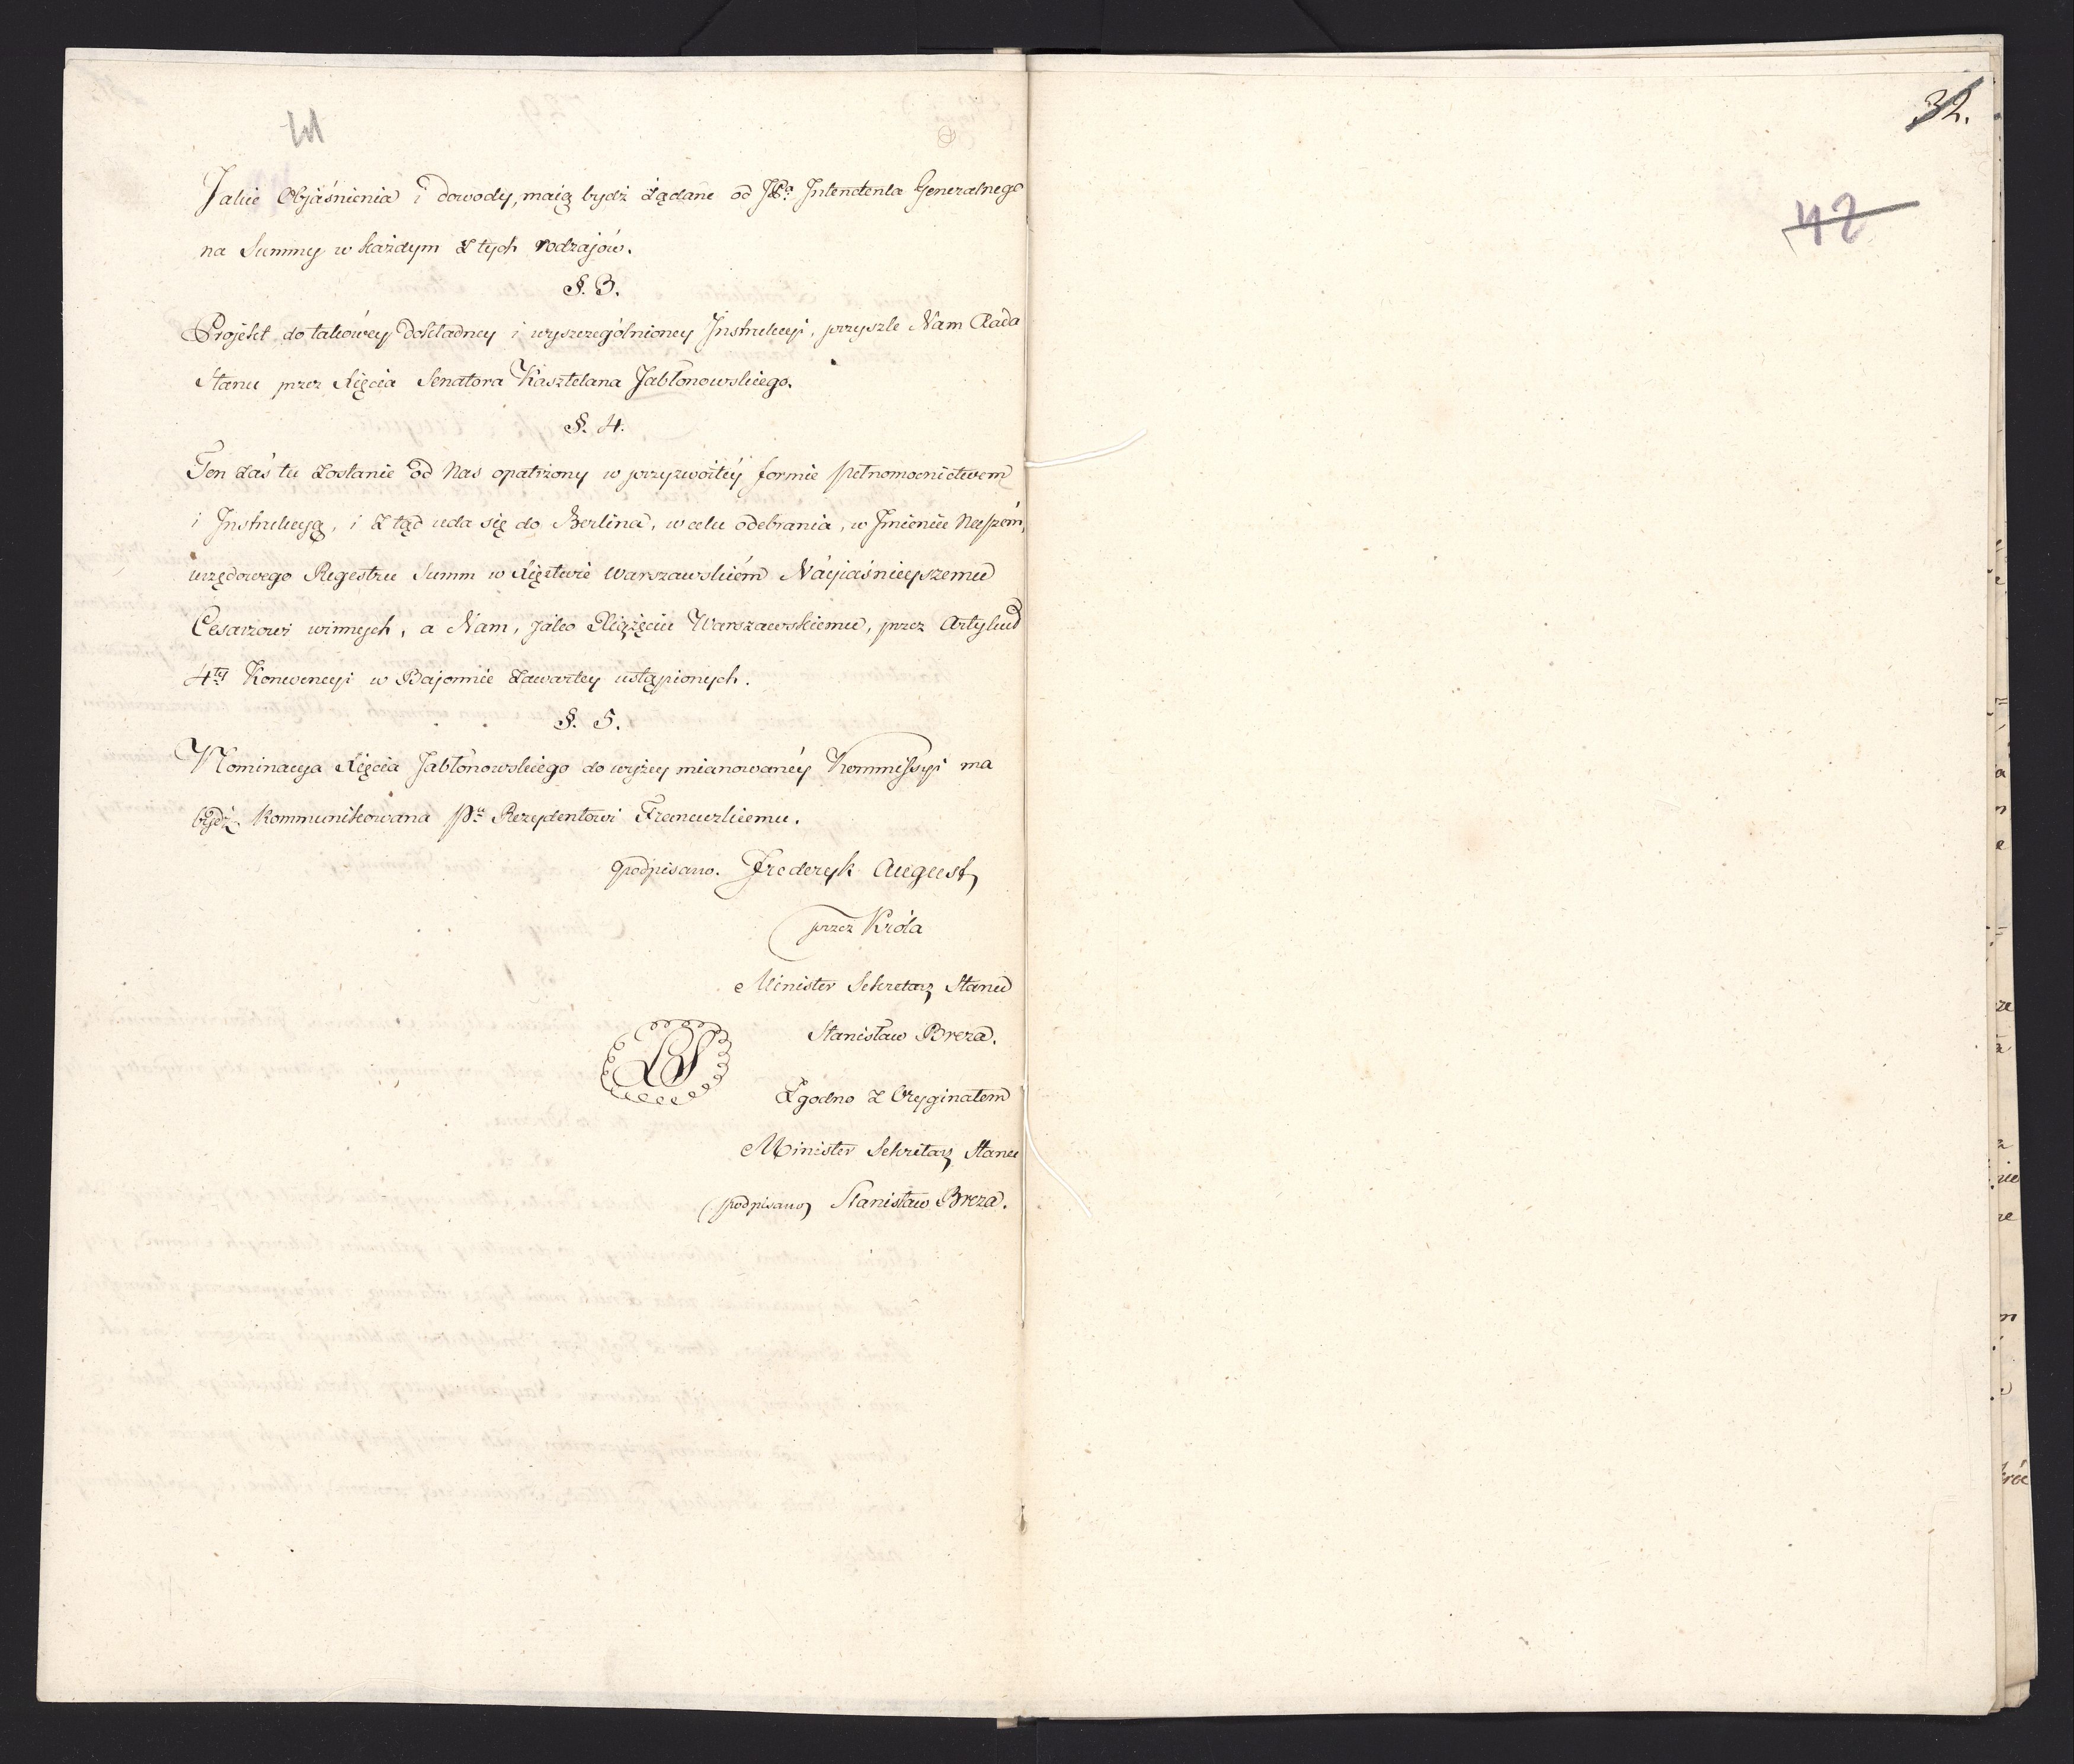 41
Jakie Objaśnienia i dowody, maią bydź żądane od JPa Intendenta Generalnego
na Summy w każdym z tych rodzajów.
§. 3.
Projekt do takówey dokładney i wyszczególnioney Instrukcyi, przyszle Nam Rada
Stanu przez Xięcia Senatora Kasztelana Jabłonowskiego.
§. 4.
Ten zaś tu zostanie od Nas opatrzony w przyzwoitéy formie pełnomocnictwem
i Instrukcyą, i z tąd uda się do Berlina, w celu odebrania, w Imieniu Naszém,
urzędowego Regestru Summ w Xięstwie Warszawskiém Náyiaśnieyszemu
Cesarzowi winnych, a Nam, jako Xiążęciu Warszawskiemu, przez Artykuł
4ty Konwencyi w Bajonnie zawartey ustąpionych.
§. 5.
Nominacya Xięcia Jabłonowskiego do wyżey mianowanéy Kommissyi ma
bydź kommunikowana Pu Rezydentowi Francuzkiemu.
podpisano. Fryderyk August
przez Króla
Minister Sekretarz Stanu
Stanisław Breza.
LS
Zgodno z Oryginałem
Minister Sekretarz Stanu
(podpisano) Stanisław Breza.
32.
42